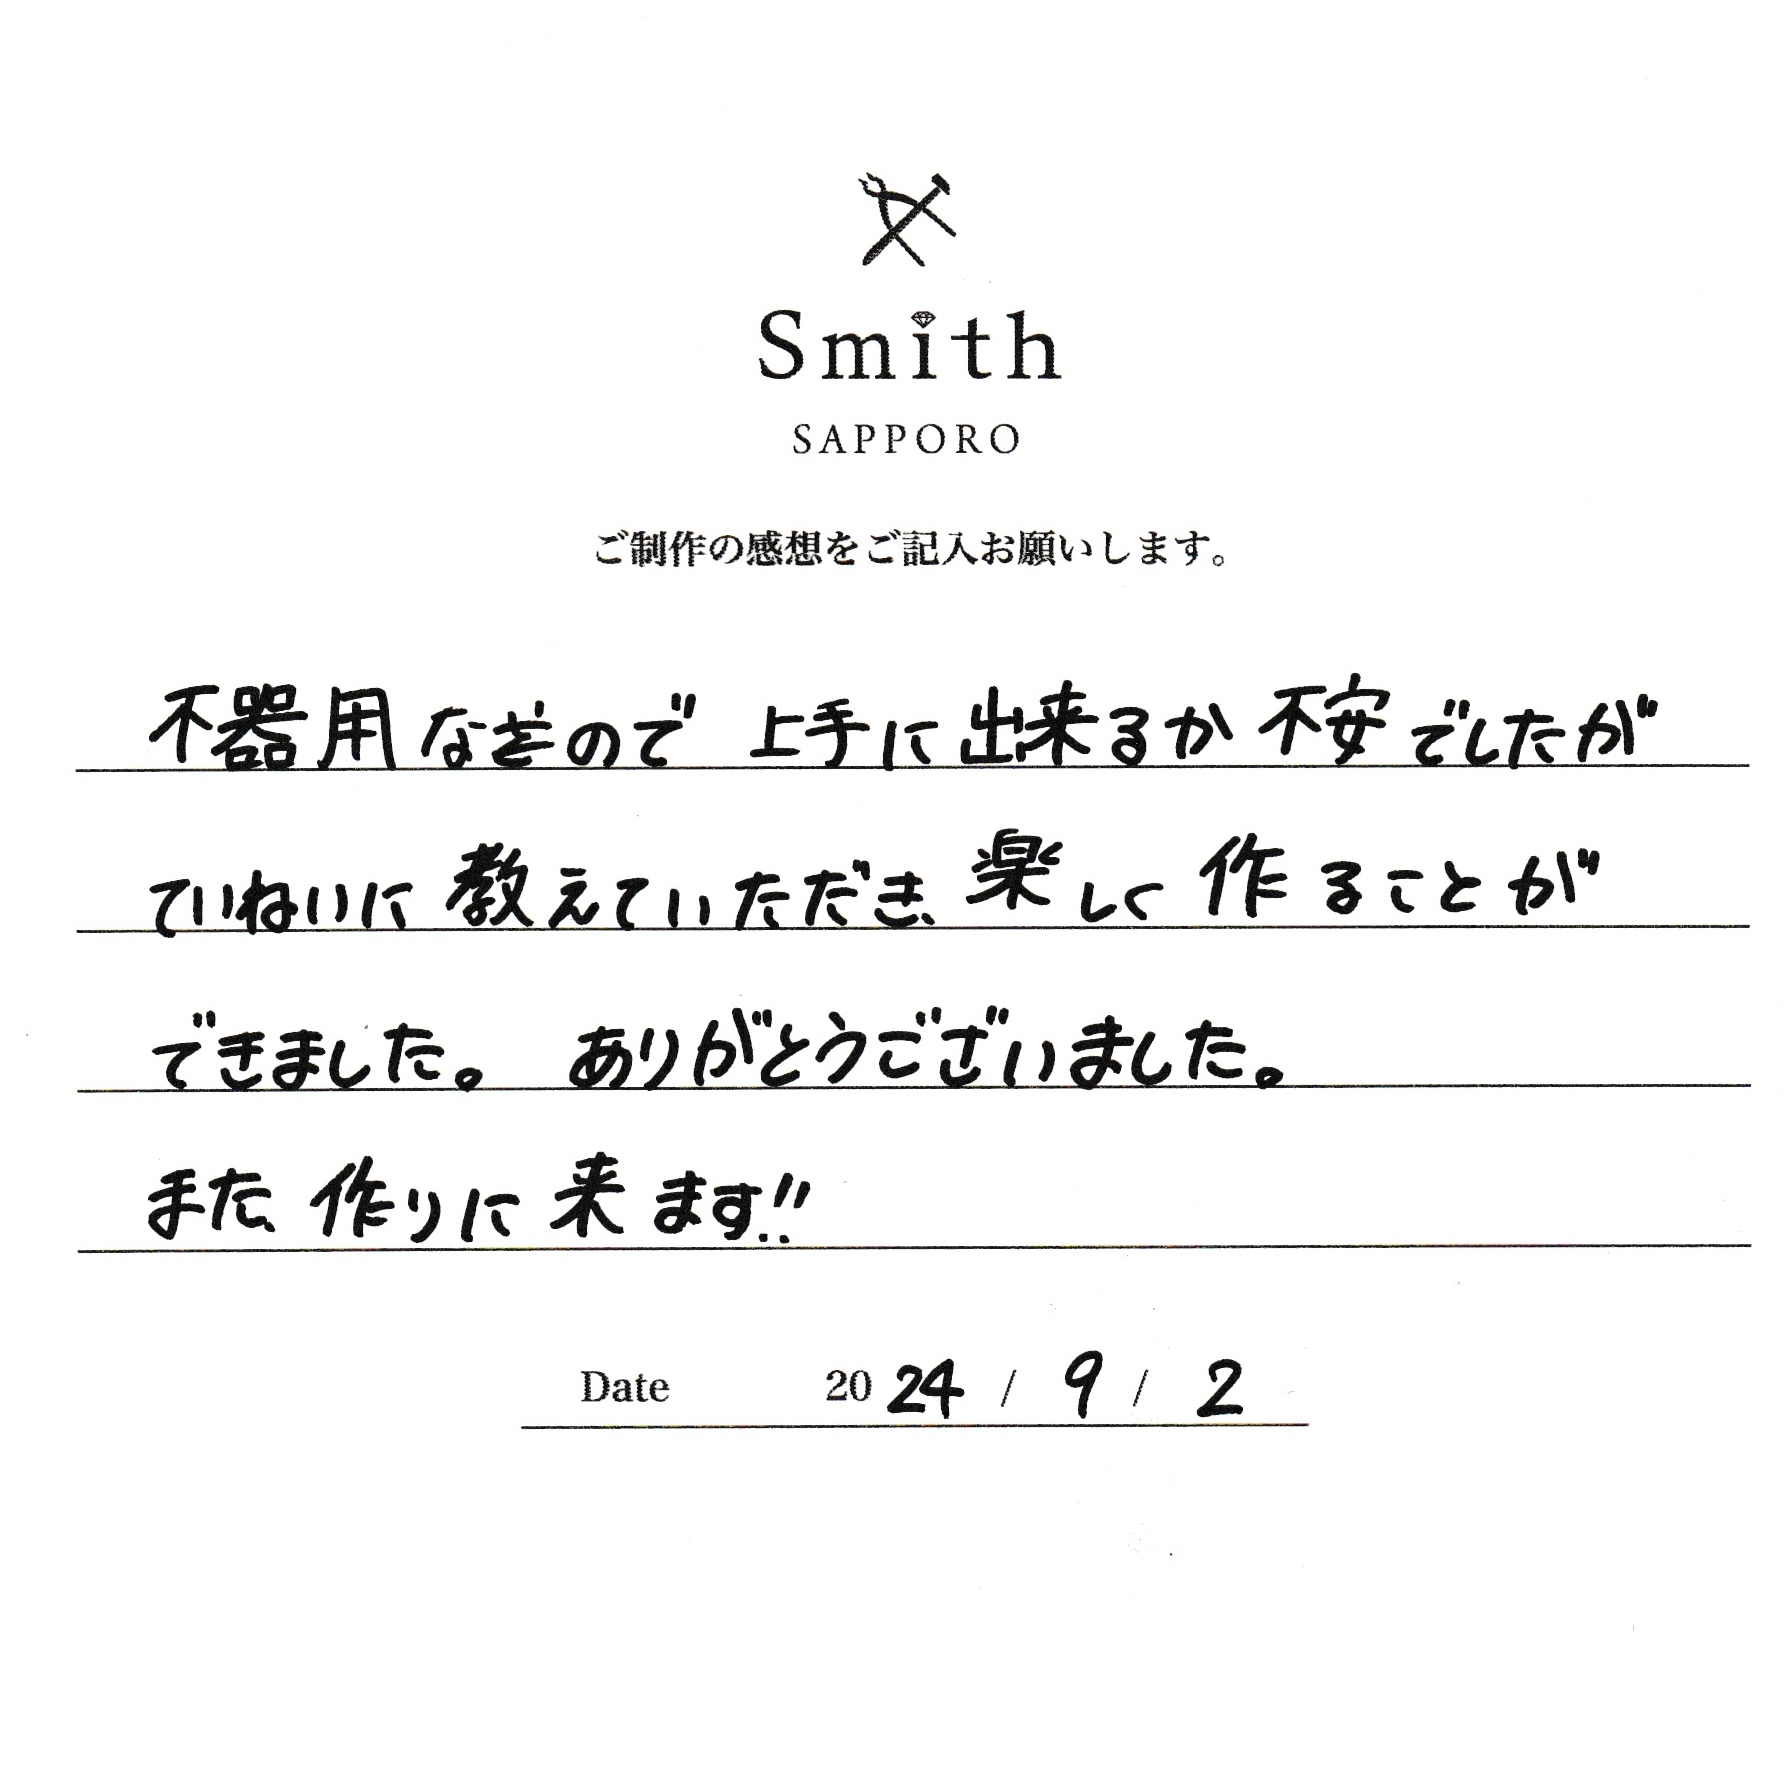 Smith
SAPPORO
ご制作の感想をご記入お願いします。
不器用なぎので 上手に出来るか 不安でしたが
ていねいに 教えていただき、楽しく 作ることが
できました。 ありがとうございました。
また、作りに 来ます!!
Date 2024 / 9 / 2